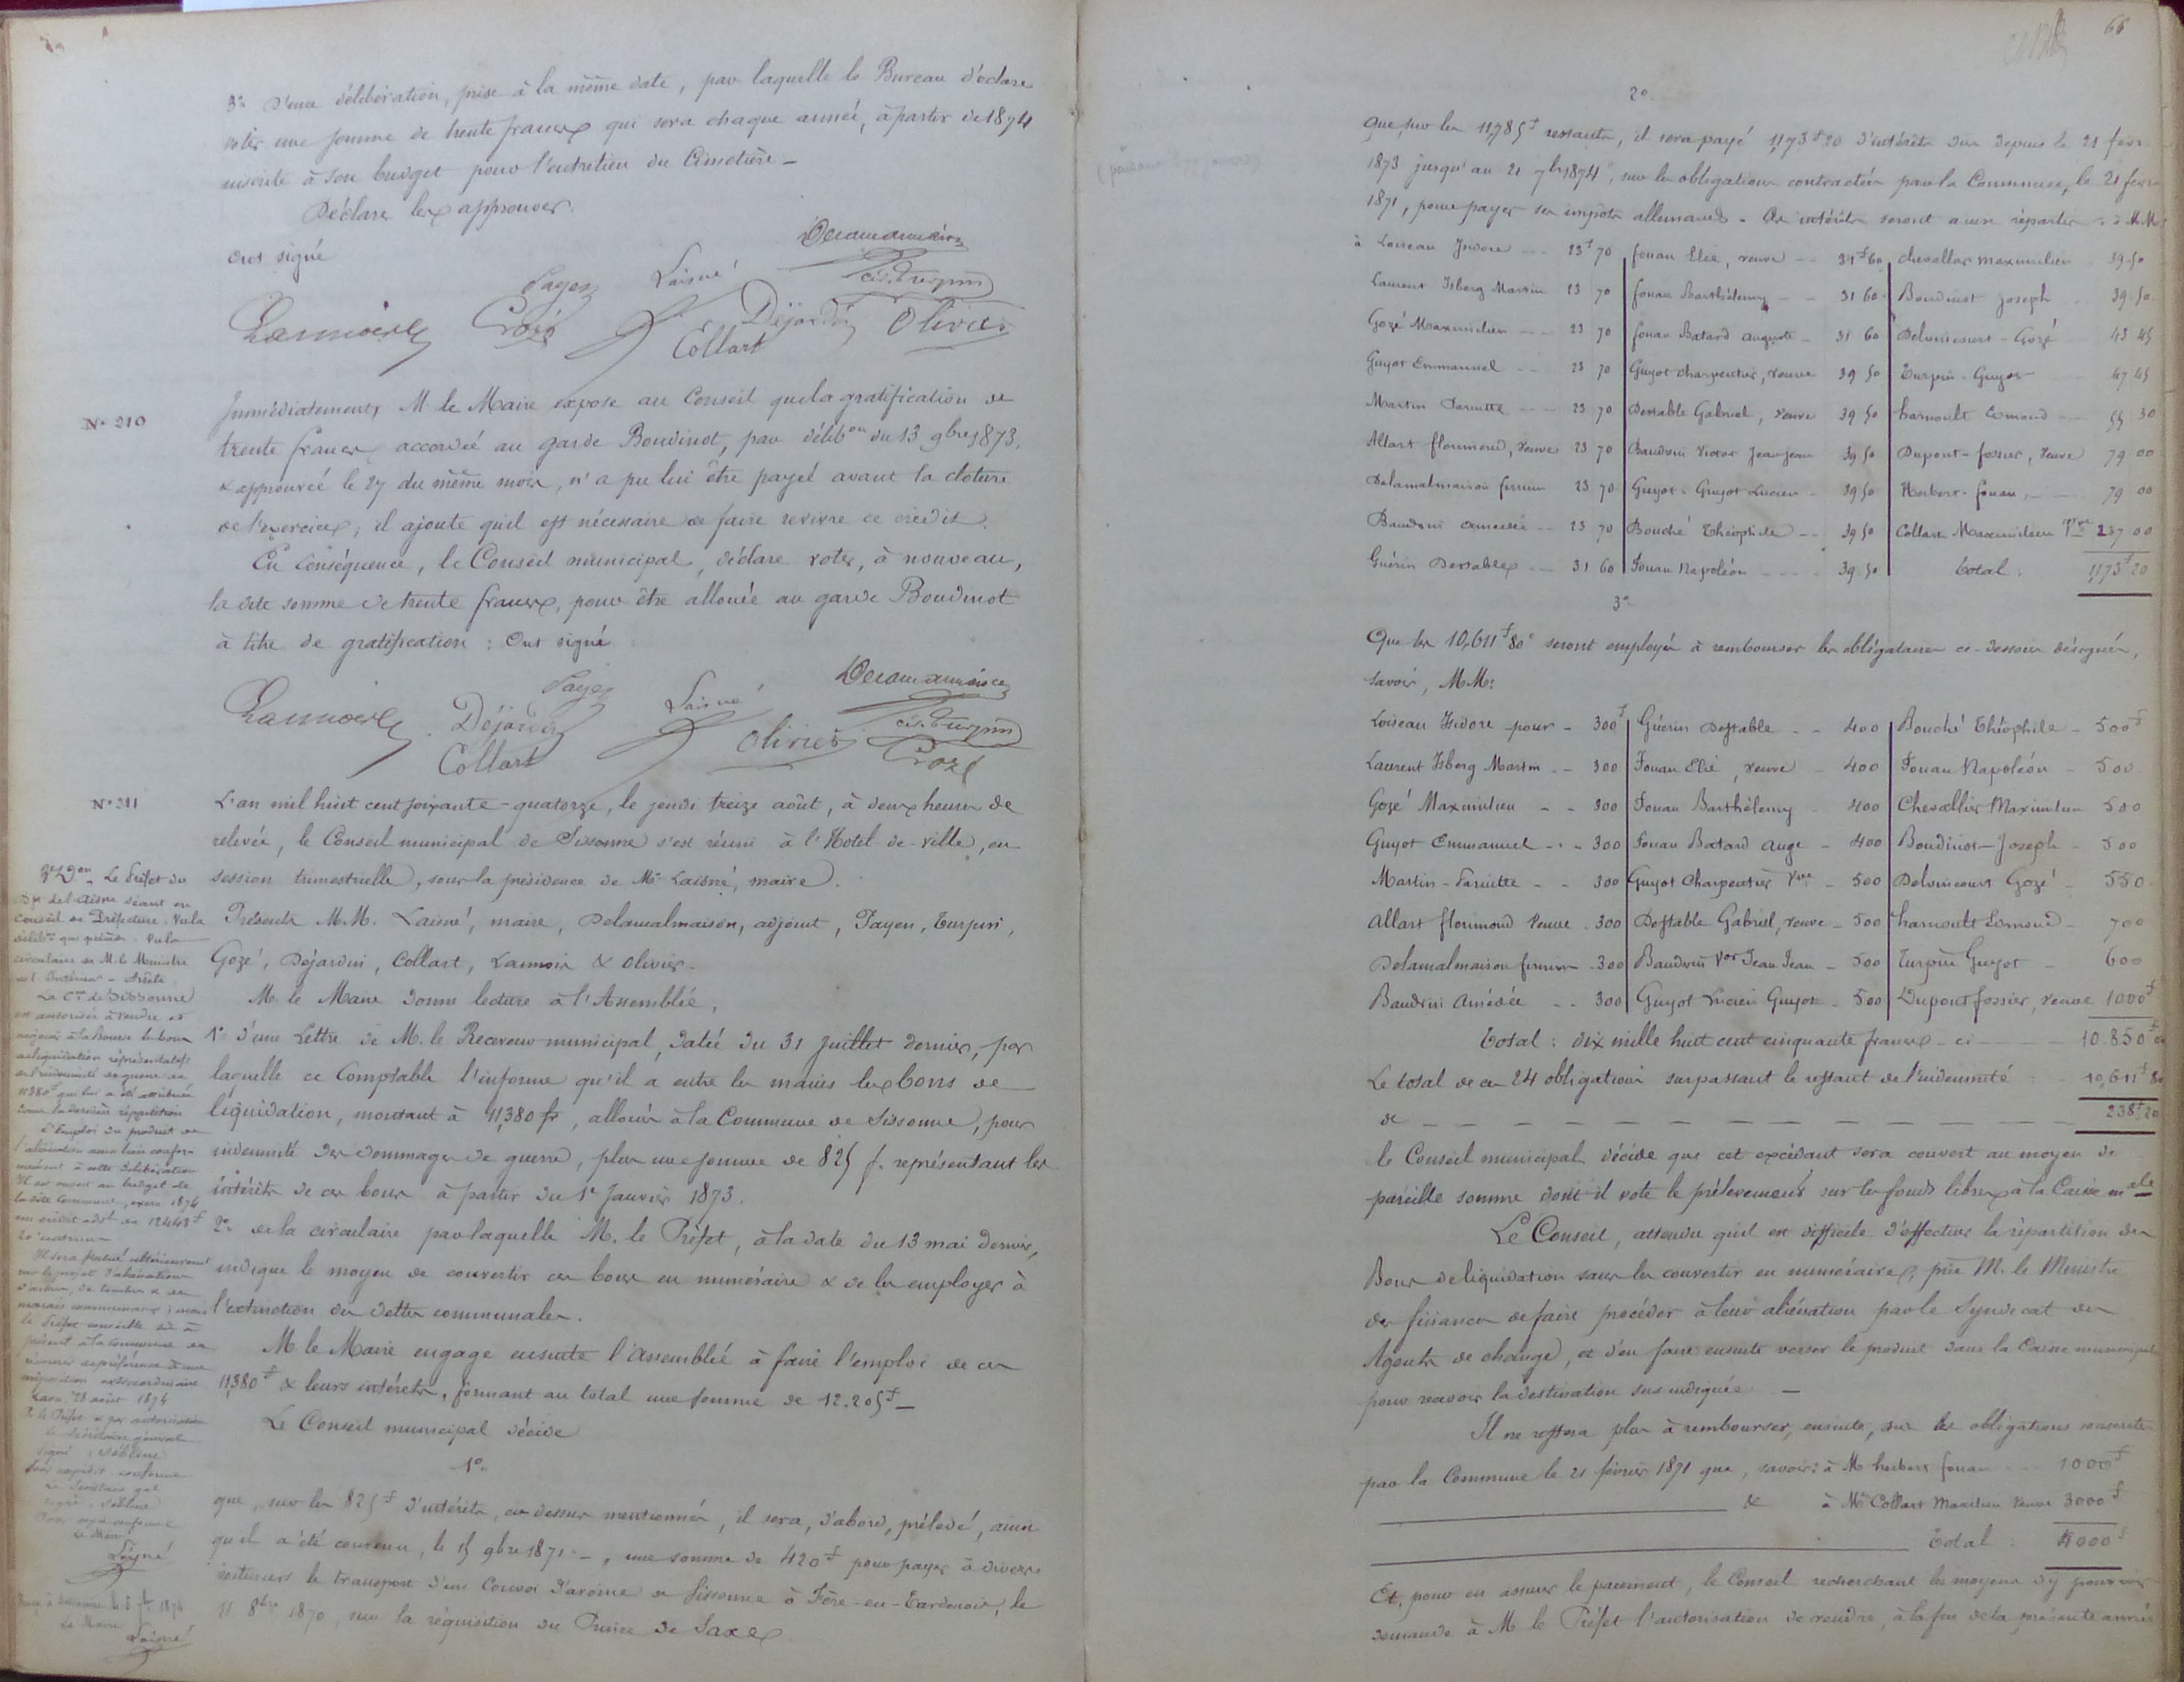 3° D'une délibération, prise à la même date, par laquelle le Bureau déclare
voter une somme de trente francs qui sera chaque année, à partir de 1874
inscrite à son budget pour l'entretien du Cimetière _
Déclare les approuver.
Ont signé
Payen Laisné
Lamoir Gozé Collart Déjardin Olivier
N° 210
Immédiatement, M. le Maire expose au Conseil que la gratification de
trente francs accordée au garde Boudinot, par délib.on du 13 9bre 1873,
& approuvée le 27 du même mois, n'a pu lui être payée avant la cloture
de l'exercice ; il ajoute qu'il est nécessaire de faire revivre ce crédit.
En conséquence, le Conseil municipal, déclare voter, à nouveau,
la dite somme de trente francs, pour être allouée au garde Boudinot
à titre de gratification : Ont signé
Payen Laisné
Lamoir Déjardin Collart Olivier Gozé
N° 211
L'an mil huit cent soixante-quatorze, le jeudi treize août, à deux heures de
relevée, le Conseil municipal de Sissonne s'est réuni à l'Hotel de-Ville, en
session trimestrielle, sous la présidence de Mr Laisné, maire.
Présents M.M. Laisné, maire, Delamalmaison, adjoint, Payen, Turpin,
Gozé, Déjardin, Collart, Lamoir & Olivier.
M. le Maire donne lecture à l'Assemblée,
1° d'une Lettre de M. le Receveur municipal, datée du 31 Juillet dernier, par
laquelle ce Comptable l'informe qu'il a entre les mains les bons de
liquidation, montant à 11,380 fr, alloués à la Commune de Sissonne, pour
indemnité des dommages de guerre, plus une somme de 825 f. représentant les
intérêts de ces bons à partir du 1er Janvier 1873.
2° de la circulaire par laquelle M. le Préfet, à la date du 13 mai dernier,
indique le moyen de convertir ces bons en numéraire & de les employer à
l'extinction des dettes communales.
M le Maire engage ensuite l'Assemblée à faire l'emploi de ces
11,380 f & leurs intérêts, formant au total une somme de 12.205 f _
Le Conseil municipal décide
1°
que, sur les 825 f d'intérêts, ci dessus mentionnés, il sera, d'abord, prélevé, ainsi
qu'il a été convenu, le 15 9bre 1871 _, une somme de 420 f pour payer à divers
voituriers le transport d'un Convoi d'avoine de Sissonne à Fère-en-Tardenois, le
11 8bre 1870, sur la réquisition du Prince de Saxe
Le Préfet du
Dpt de l'Aisne séant en
Conseil de Préfecture. Vu la
délib.on qui précède. Vu la
circulaire de M. le Ministre
de l'Intérieur - Arrête
La Cne de Sissonne
est autorisée à vendre et
négocier à la Bourse les bons
de liquidation représentatifs
de l'indemnité de guerre de
11380 f qui lui a été attribuée
dans la dernière répartition
L'Emploi du produit de
l'aliénation aura lieu confor-
mément à cette délibération
Il est ouvert au budget de
la dite Commune, exce 1874
un crédit adel de 12448 f
Il sera statué ultérieurement
sur le projet d'aliénation
marais communaux ; mais
le Préfet conseille dès à
présent à la Commune de
Laon, 28 août 1874
le Secrétaire général
signé : Sébline
Pour expédit. conforme
Le Secrétaire gal
signé : Sébline
Pour copie conforme
Le Maire
Laisné
Le Maire
Laisné
66
2°
que, sur les 11,785 f restants, il sera payé 1,173 f 20 d'intérêts dus depuis le 21 févr
1873 jusqu'au 21 7bre 1874, sur les obligations contractées par la Commune, le 21 févr
1871, pour payer les impôts allemands. Ces intérêts seront ainsi répartis : à M.M.
à Loiseau Isidore --- 23 f 70 | fouan Elié, veuve -- 31 f 60 | Chevallier Maximilien 39.50
Laurent Isberg Martin 23 70 | fouan Barthélemy -- 31 60 | Boudinot Joseph - 39.50
Gozé Maximilien --- 23 70 | fouan Batard Auguste - 31 60 | Delvincourt-Gozé 43 45
Guyot Emmanuel -- 23 70 | Guyot Charpentier, veuve 39 50 | Turpin-Guyot 47 45
Martin Paruitte --- 23 70 | Destable Gabriel, veuve 39.50 | harnoult Edmond --- 55 30
Allart florimond, veuve 23 70 | Baudoin Victor Jean-Jean 39.50 | Dupont-fossier, veuve 79 00
Delamalmaison firmin 23 70 | Guyot-Guyot Lucien - 39 50 | Herbert-fouan, -- 79 00
Baudoin Amédée -- 23 70 | Bouché Théophile -- 39.50 | Collart Maximilien Vve 237 00
Guérin Destable -- 31 60 | Fouan Napoléon ---- 39.50 | Total : 1,173 f 20
3°
Que les 10,611 f 80 c seront employés à rembourser les obligataires ci-dessous désignés,
savoir, MM:
Loiseau Isidore pour - 300 f | Guérin Destable -- 400 | Bouché Théophile - 500 f
Laurent Isberg Martin -- 300 | Fouan Elié, veuve - 400 | Fouan Napoléon - 500
Gozé Maximilien -- 300 | Fouan Barthélemy - 400 | Chevallier Maximilien 500
Guyot Emmanuel -- 300 | Fouan Batard Auge - 400 | Boudinot-Joseph - 500
Martin-Paruitte -- 300 | Guyot Charpentier Vve - 500 | Delvincourt Gozé - 550
Allart florimond Veuve - 300 | Destable Gabriel, veuve - 500 | harnoult Edmond - 700
Delamalmaison firmin - 300 | Baudoin Vor Jean Jean - 500 | Turpin Guyot - 600
Baudoin Amédée -- 300 | Guyot Lucien Guyot - 500 | Dupont fossier, veuve 1000 f
Total : dix mille huit cent cinquante francs - ci ---- 10.850 f 00
Le total de ces 24 obligations surpassant le restant de l'indemnité -- 10,611 f 80
de _ _ _ _ _ _ _ _ _ _ _ _ 238 f 20
le Conseil municipal décide que cet excédant sera couvert au moyen de
pareille somme dont il vote le prélèvement sur les fonds libres à la Caisse male
Le Conseil, attendu qu'il est difficile d'effectuer la répartition des
Bons de liquidation sans les convertir en numéraire, prie M. le Ministre
des finances de faire procéder à leur aliénation par le Syndicat des
Agents de change, et d'en faire ensuite verser le produit dans la Caisse municipale
pour recevoir la destination sus indiquée _
Il ne restera plus à rembourser, ensuite, sur les obligations souscrites
par la Commune le 21 février 1871 que, savoir : à M herbert fouan --- 1000 f
& à Me Collart Maximilien Veuve 3000 f
Total : 4000 f
Et, pour en assurer le paiement, le Conseil recherchant les moyens d'y pourvoir
demande à M le Préfet l'autorisation de vendre, à la fin de la présente année